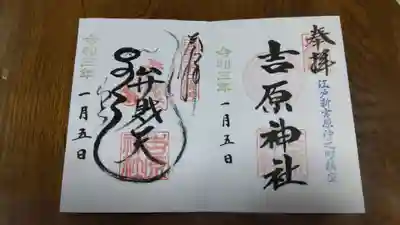 奉拝
江戸新吉原浄之町鎮座
吉原神社
令和三年
一月五日
弁財天
令和三年
一月五日